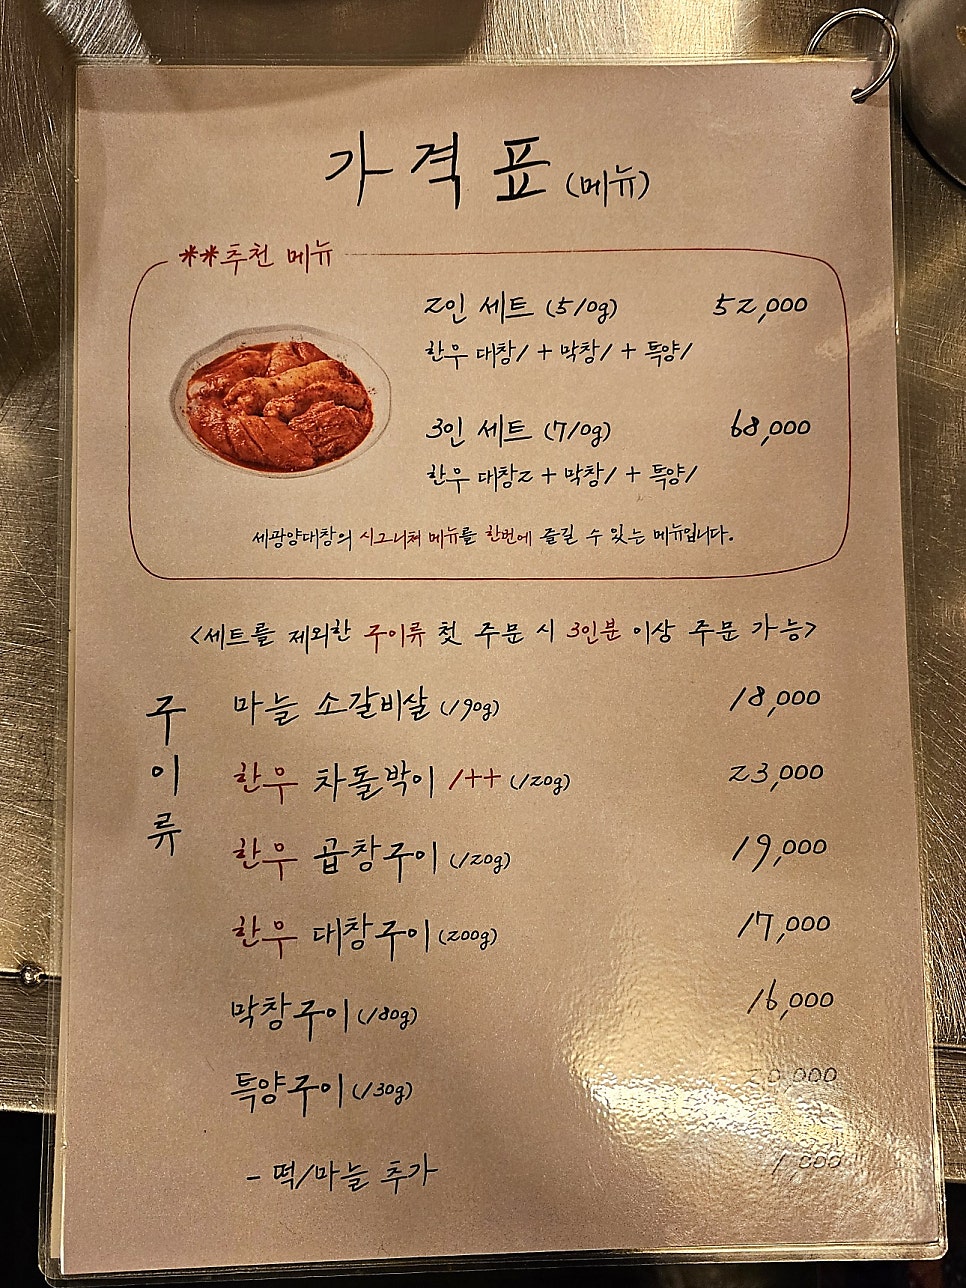 가격표 (메뉴)
**추천 메뉴
2인 세트 (510g) 52,000
한우 대창1 + 막창1 + 특양1
3인 세트 (710g) 68,000
한우 대창2 + 막창1 + 특양1
세광양대창의 시그니처 메뉴를 한번에 즐길 수 있는 메뉴입니다.
<세트를 제외한 구이류 첫 주문 시 3인분 이상 주문 가능>
구이류
마늘 소갈비살 (190g) 18,000
한우 차돌박이 1++ (120g) 23,000
한우 곱창구이 (120g) 19,000
한우 대창구이 (200g) 17,000
막창구이 (180g) 16,000
특양구이 (130g) 20,000
- 떡/마늘 추가